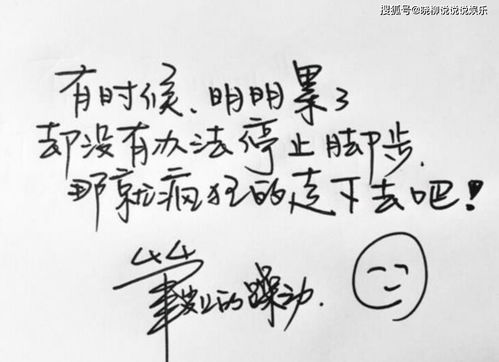 搜狐号@晓柳说说说娱乐
有时候、明明累了
却没有办法停止脚步.
那就疯狂的走下去吧!
的躁动.